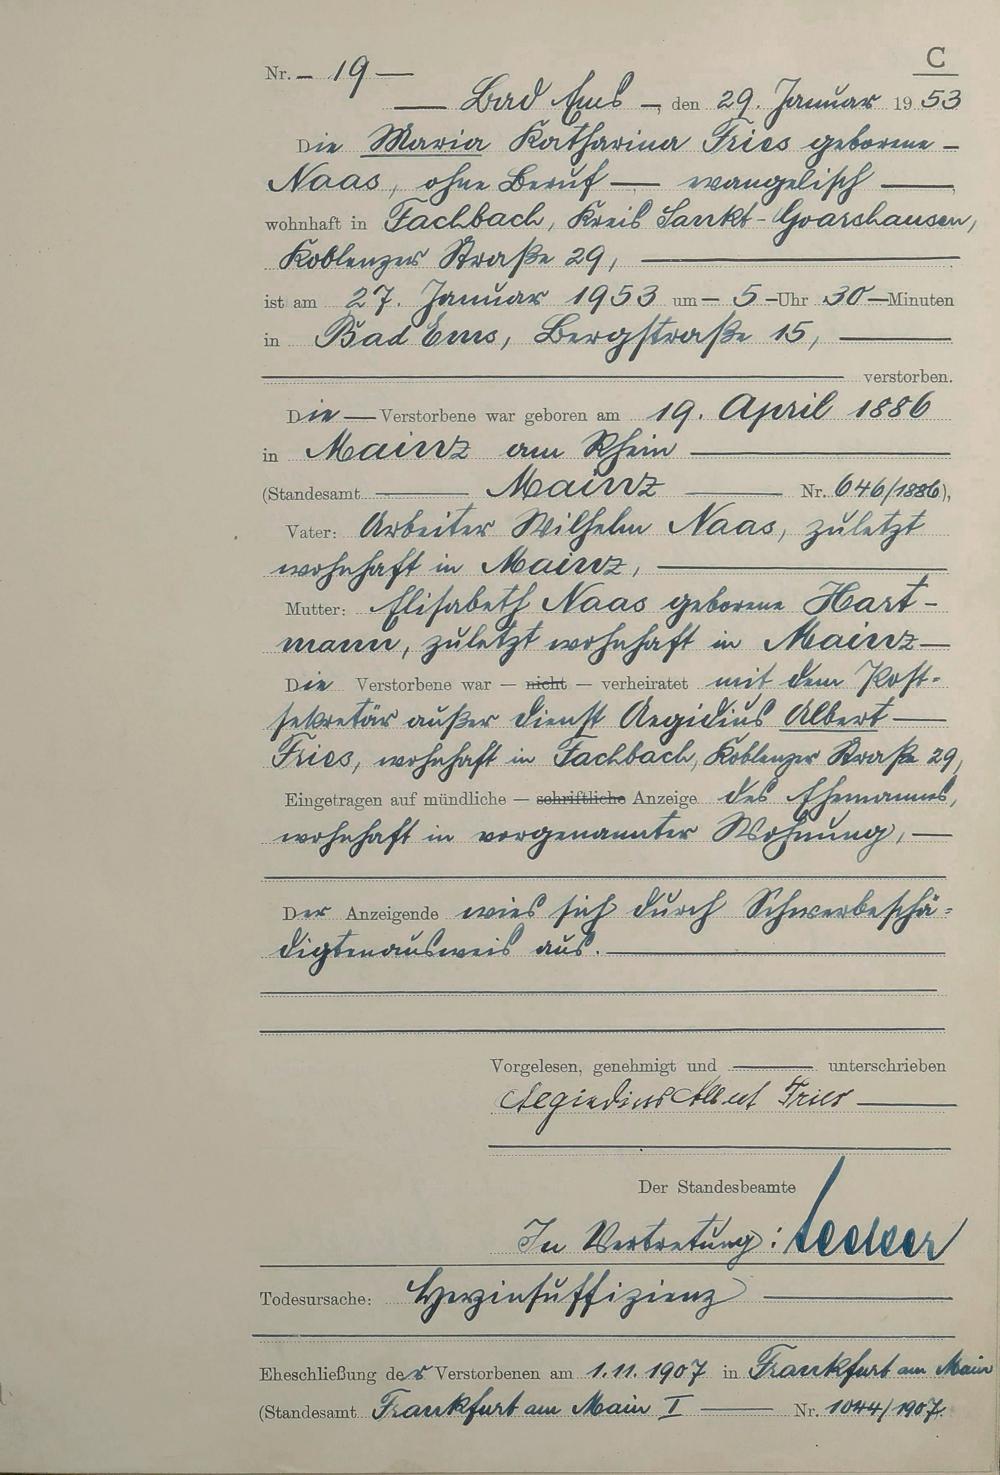 C
Nr. – 19 —
— Bad Ems –, den 29. Januar 1953
Die Maria Katharina Fries geborene –
Naas, ohne Beruf — — evangelisch —,
wohnhaft in Fachbach, Kreis Sankt-Goarshausen,
Koblenzer Straße 29, —
ist am 27. Januar 1953 um – 5 – Uhr 30 – Minuten
in Bad Ems, Bergstraße 15, —
— verstorben.
Die — Verstorbene war geboren am 19. April 1886
in Mainz am Rhein —
(Standesamt — Mainz — Nr. 646/1886),
Vater: Arbeiter Wilhelm Naas, zuletzt
wohnhaft in Mainz, —
Mutter: Elisabeth Naas geborene Hart-
mann, zuletzt wohnhaft in Mainz —
Die Verstorbene war — nicht — verheiratet mit dem Post-
sekretär außer Dienst Aegidius Albert —
Fries, wohnhaft in Fachbach, Koblenzer Straße 29,
Eingetragen auf mündliche — schriftliche Anzeige des Ehemannes,
wohnhaft in vorgenannter Wohnung, —
Der Anzeigende wies sich durch Schwerbeschä-
digtenausweis aus. —
Vorgelesen, genehmigt und — unterschrieben
Aegidius Albert Fries —
Der Standesbeamte
In Vertretung:
Todesursache: Herzinsuffizienz —
Eheschließung der Verstorbenen am 1.11.1907 in Frankfurt am Main
(Standesamt Frankfurt am Main I — Nr. 1044/1907.